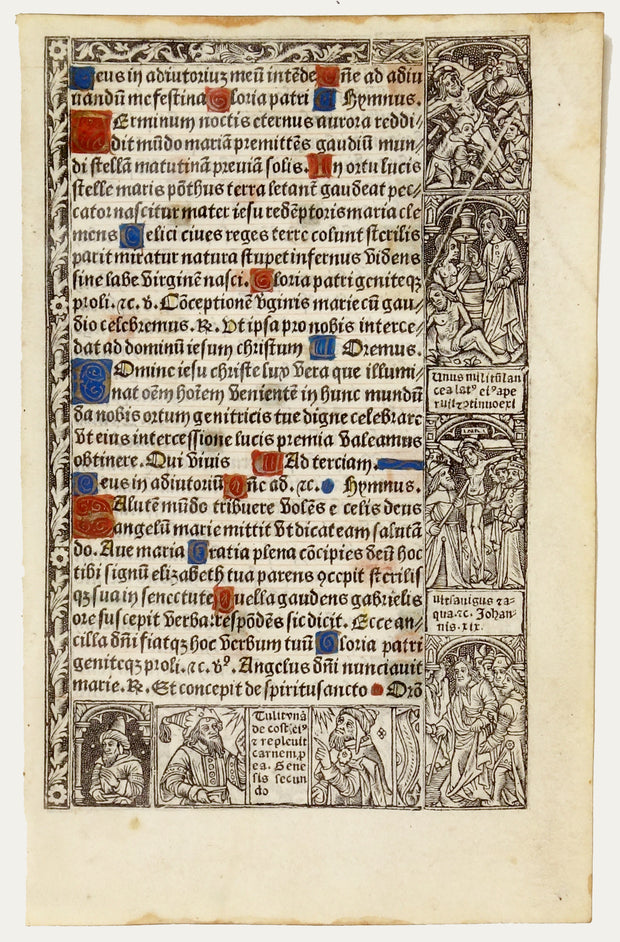 Deus in adiutoriuz meū intēde Dñe ad adiu
uandū me festina Gloria patri Hymnus.
Terminum noctis eternus aurora reddi-
dit mūdo mariam premittēs gaudiū mun-
di stellā matutinam previam solis. In ortu lucis
stelle maris pōthus terra letant̄ gaudeat pec-
cator nascitur mater iesu redēptoris maria cle
mens Celici cives reges terre colunt sterilis
parit miratur natura stupet infernus videns
sine labe virginē nasci. Gloria patri geniteqz
proli. ⁊c. v. Cōceptionem vginis marie cū gau-
dio celebremus. R. Vt ipsa pro nobis interce-
dat ad dominū iesum christum Oremus.
Domine iesu christe lux vera que illumi-
nat oēm hoīem venientē in hunc mundū
da nobis ortum genitricis tue digne celebrare
vt eius intercessione lucis premia valeamus
obtinere. Qui vivis Ad terciam.
Deus in adiutoriū Dñe ad. ⁊c. Hymnus.
Salutē mūdo tribuere volēs e celis deus
angelū marie mittit vt dicat eam salutā
do. Ave maria Gratia plena cōcipies deū hoc
tibi signū elizabeth tua parens ꝯcepit sterilis
qz sua in senectute Puella gaudens gabrielis
ore suscepit verba: respōdēs sic dicit. Ecce an-
cilla dñi fiat qz hoc verbum tuū Gloria patri
geniteqz proli. ⁊c. vꝰ. Angelus dñi nunciavit
marie. R. Et concepit de spiritu sancto Orō
Unus militū lan
cea latꝰ eiꝰ ape
ruit ⁊ ꝯtinuo exi
INRI
vit sanguis ⁊ a-
qua. ⁊c. Johan-
nis. xix.
Tulit vnā
de cost eiꝰ
⁊ replevit
carnem p
ea. Gene
sis secun
do